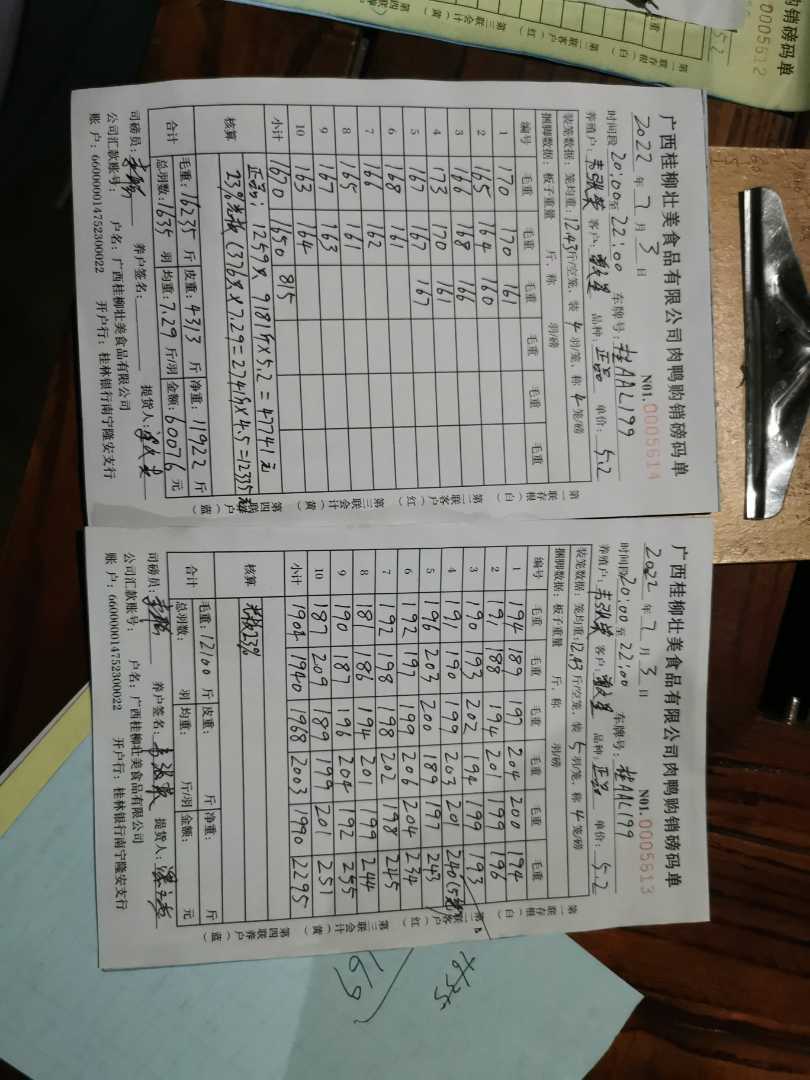 广西桂柳壮美食品有限公司肉鸭购销磅码单
N01.0005614
2022 年 7 月 3 日
时间段 20:00 至 22:00 车牌号: 桂AAL199
养殖户: 客户: 品种: 正品 单价: 5.2
装笼数据: 笼均重: 12.43 斤/空笼, 装 4 羽/笼, 称 4 笼/磅
捆脚数据: 板子重量 斤, 称 羽/磅
编号 毛重 毛重 毛重 毛重 毛重 毛重
1 170 170 161
2 165 164 160
3 166 168 166
4 173 170 161
5 167 167 167
6 168 161
7 166 162
8 165 161
9 167 163
10 163 164
小计 1670 1650 815
核算 正品: 1259只 9181斤×5.2=47741元
23%光板(376只×7.29=2741斤×4.5=12335元
合计 毛重: 16235 斤 皮重: 4313 斤 净重: 11922 斤
总羽数: 1635 羽 均重: 7.29 斤/羽 金额: 60076 元
司磅员: 养户签名: 提货人:
公司汇款账号: 户名: 广西桂柳壮美食品有限公司
账 户: 660000014752300022 开户行: 桂林银行南宁隆安支行
第一联存根(白) 第二联客户(红) 第三联会计(黄) 第四联养户(蓝)
广西桂柳壮美食品有限公司肉鸭购销磅码单
N01.0005613
2022 年 7 月 3 日
时间段 20:00 至 22:00 车牌号: 桂AAL199
养殖户: 客户: 品种: 正品 单价: 5.2
装笼数据: 笼均重: 12.43 斤/空笼, 装 5 羽/笼, 称 4 笼/磅
捆脚数据: 板子重量 斤, 称 羽/磅
编号 毛重 毛重 毛重 毛重 毛重 毛重
1 194 189 197 204 200 194
2 191 188 194 201 199 196
3 190 193 202 194 199 193
4 191 190 199 203 201 240(5笼
5 196 203 200 189 197 243
6 192 197 199 206 204 234
7 192 198 198 202 198 245
8 181 186 194 201 199 244
9 190 187 196 204 192 255
10 187 209 189 199 201 251
小计 1904 1940 1968 2003 1990 2295
核算 光板23%
合计 毛重: 12100 斤 皮重: 斤 净重: 斤
总羽数: 羽 均重: 斤/羽 金额: 元
司磅员: 养户签名: 提货人:
公司汇款账号: 户名: 广西桂柳壮美食品有限公司
账 户: 660000014752300022 开户行: 桂林银行南宁隆安支行
第一联存根(白) 第二联客户(红) 第三联会计(黄) 第四联养户(蓝)
购销磅码单
0005612
5.2
毛重
第一联存根(白) 第二联客户(红) 第三联会计(黄)